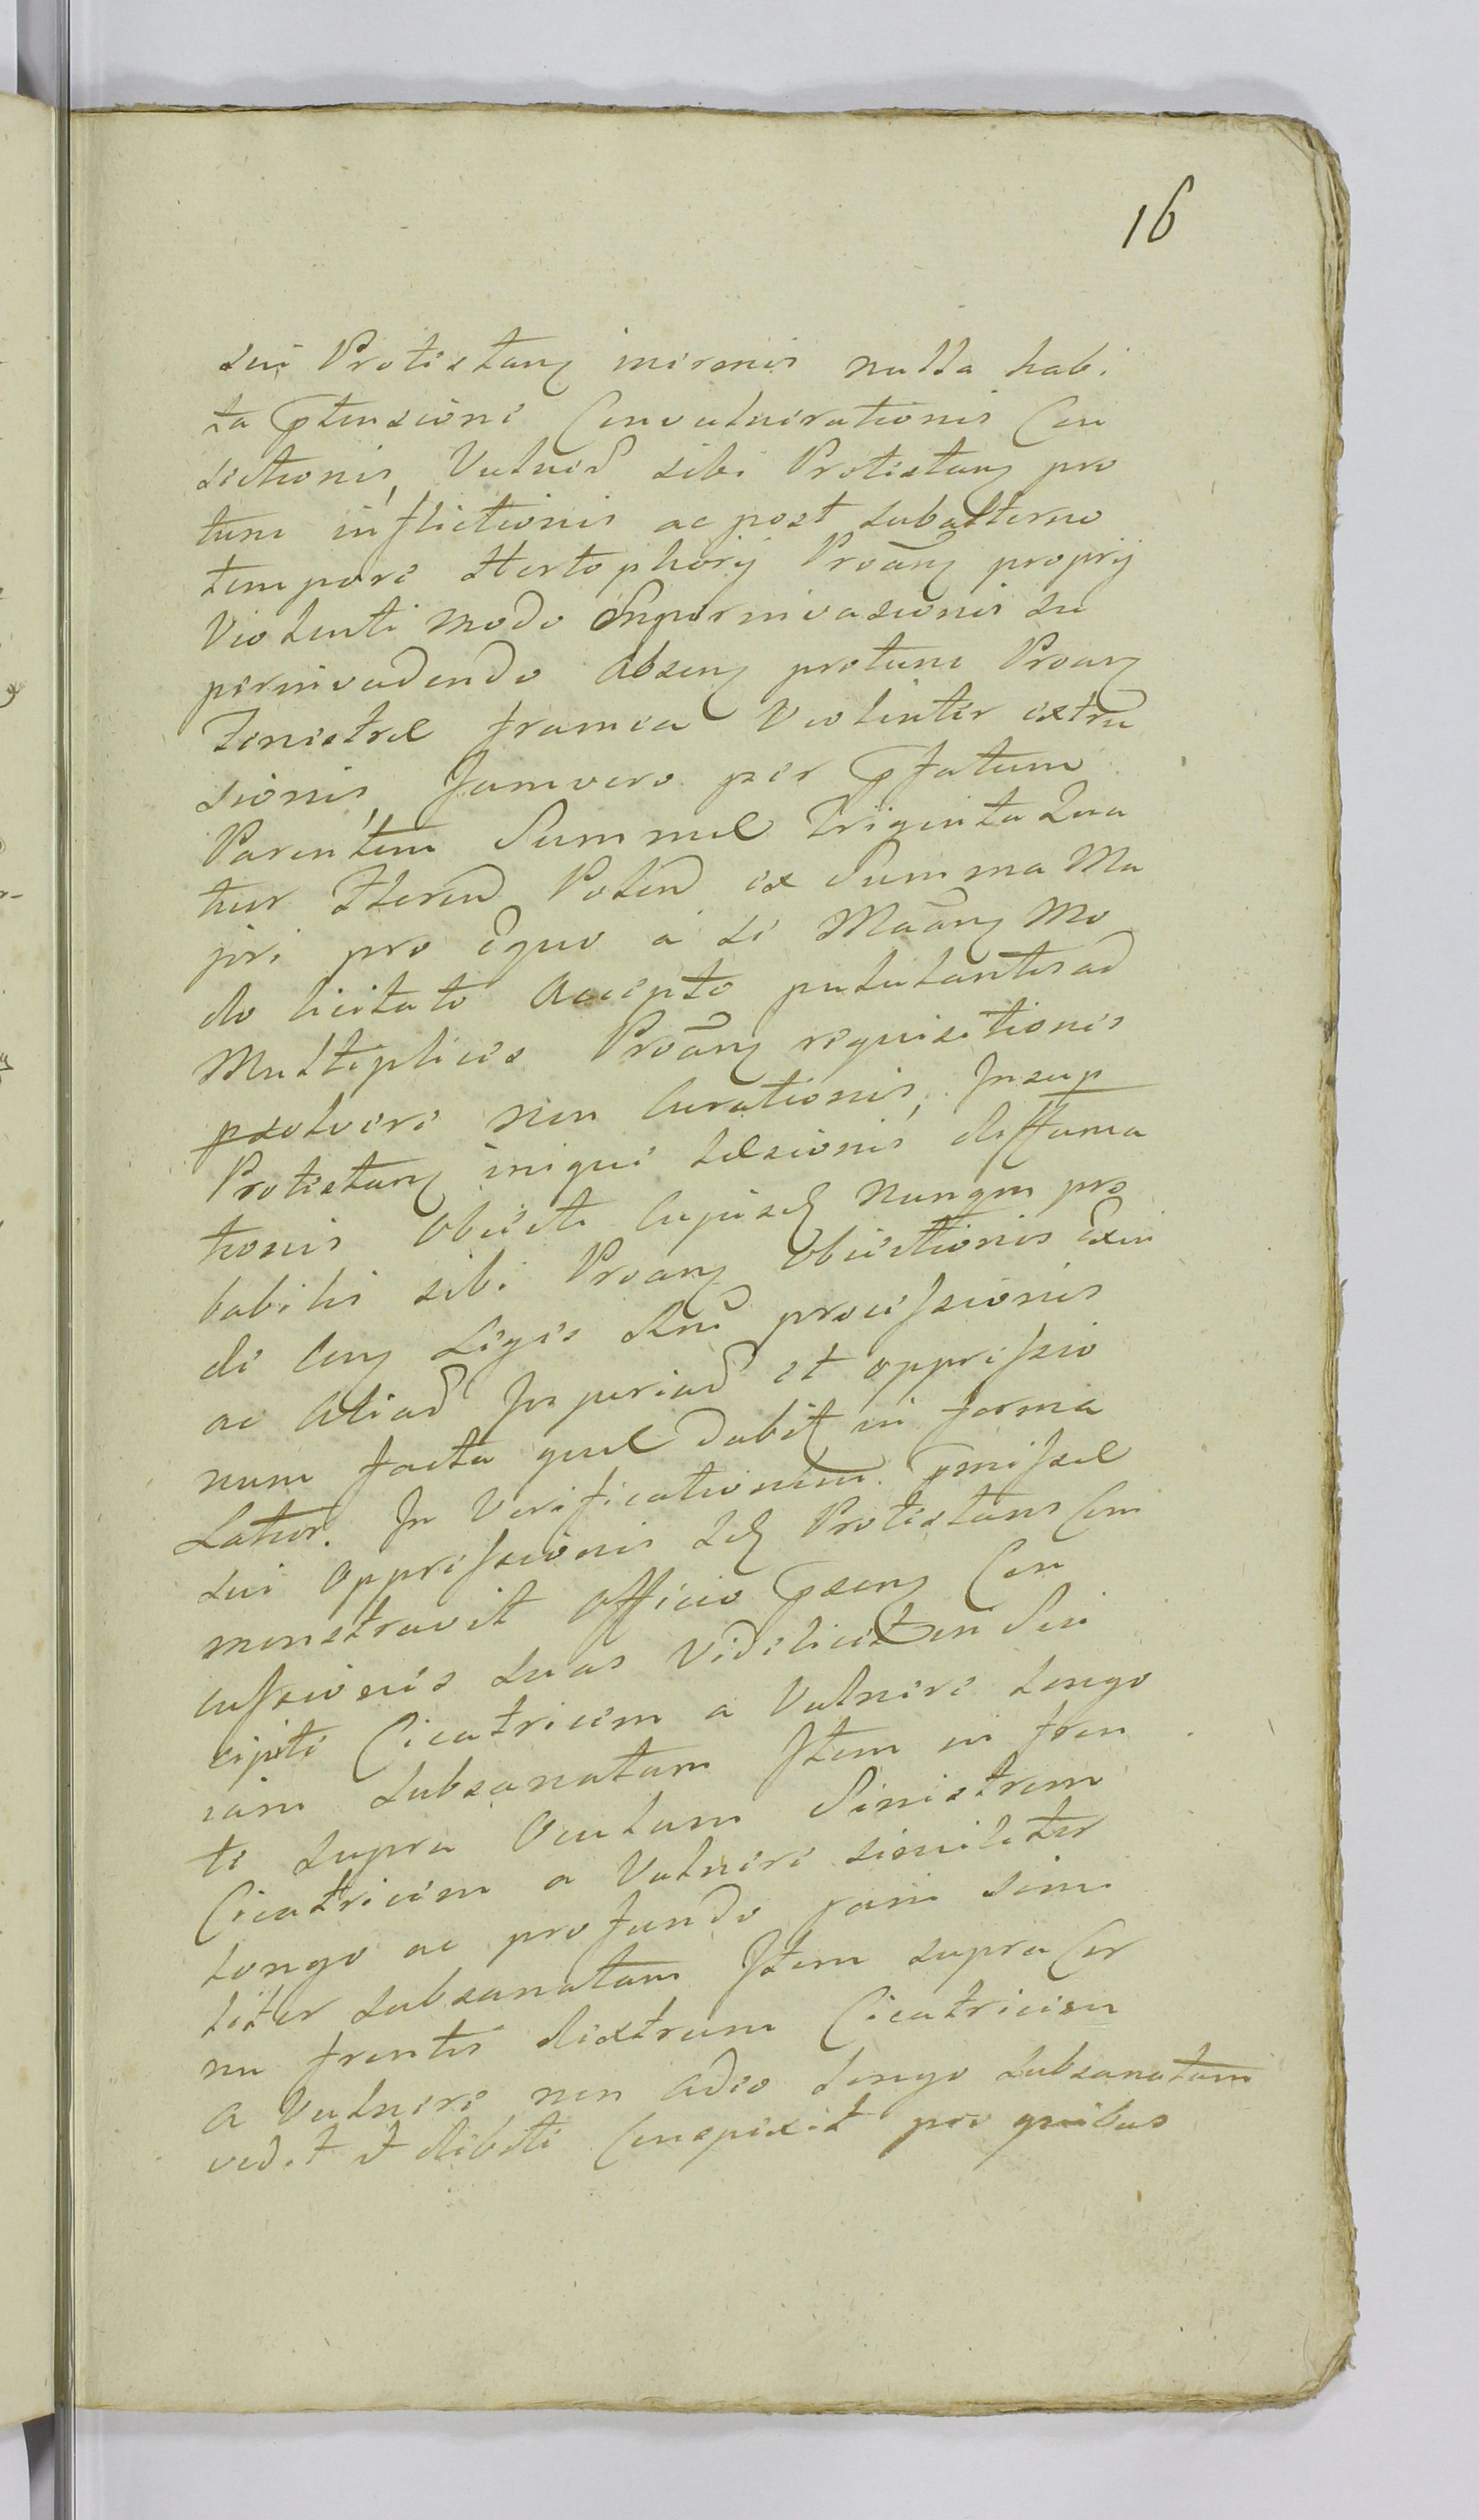 16
sui Protestanz inermis nulla habi
ta ptensione Convulnerationis Con
sectionis, Vulned sibi Protestanz pro
tunc inflictionis ac post subalterno
tempore Hortophorij Proanz proprij
Violenti modo Superinvasionis su
perinvadendo absenz protunc Proanz
Fenestræ framea Violenter extru
sionis, Jamvero per pfatum
Parentem Summæ Triginta Qua
tuor floren Polen ex Summa Ma
jori pro Equo a se Maanz Mo
do licitato accepto petulantes ad
Multiplices Proanz requisitiones
psolvere non Curationis, Insup
Protestanz inique læsionis diffama
tionis obiecti cujusdz nunqm pro
babilis sibi Proanz obiectionis Exin
de Conz Legis Rni processionis
ac aliad Injuriad et oppressio
num facta quæ dabit in forma
Latior. In Verificationem pmissæ
sui oppressionis Idz Protestans Com
monstravit officio psenz Con
cussiones suas Videlicet in Sin
cipite Cicatricem a Vulnere longo
iam subsanatam Item in fron
te supra Oculum Sinistrum
Cicatricem a Vulnere similiter
longo ac profundo jam simi
liter subsanatam Item supra Cor
nu frontis dextrum Cicatricem
a Vulnere non adeo longo subsanatam
vidit et debite Conspexit pro quibus